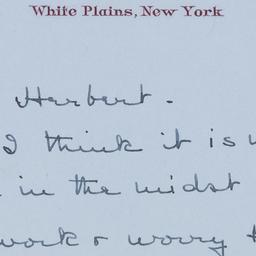 White Plains, New York
Herbert.
I think it is
in the midst
work & worry